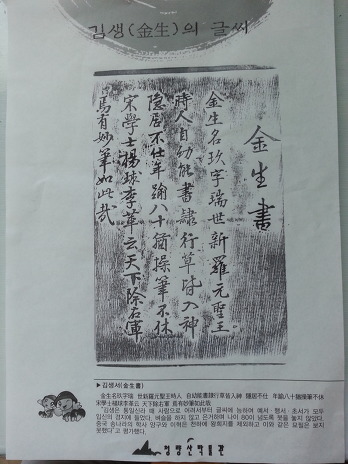 김생(金生)의 글씨
金生書
金生名玖字瑞世新羅元聖王
時人自幼能書隷行草皆入神
隐居不仕年踰八十猶操筆不休
宋學士楊球李革云天下除右軍
焉有妙筆如此哉
▶김생서(金生書)
金生名玖字瑞 世新羅元聖王時人 自幼能書隷行草皆入神 隱居不仕 年踰八十猶操筆不休
宋學士楊球李革云 天下除右軍 焉有妙筆如此哉
"김생은 통일신라 때 사람으로 어려서부터 글씨에 능하여 예서·행서·초서가 모두
입신의 경지에 들었다. 벼슬을 하지 않고 은거하며 나이 80이 넘도록 붓을 놓지 않았다.
중국 송나라의 학사 양구와 이혁은 천하에 왕희지를 제외하고 이와 같은 묘필은 보지
못했다"고 평가했다.
청량산박물관